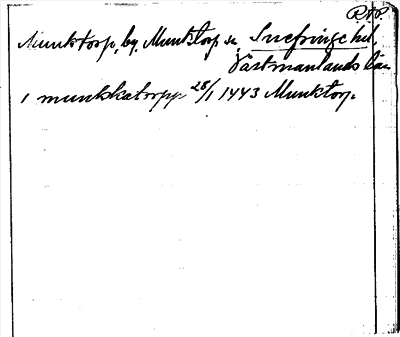 R.O.P.
Munktorp, by, Munktorp sn Snefringe hd,
Västmanlands län
i munkkatorpp 28/1 1443 Munktorp.